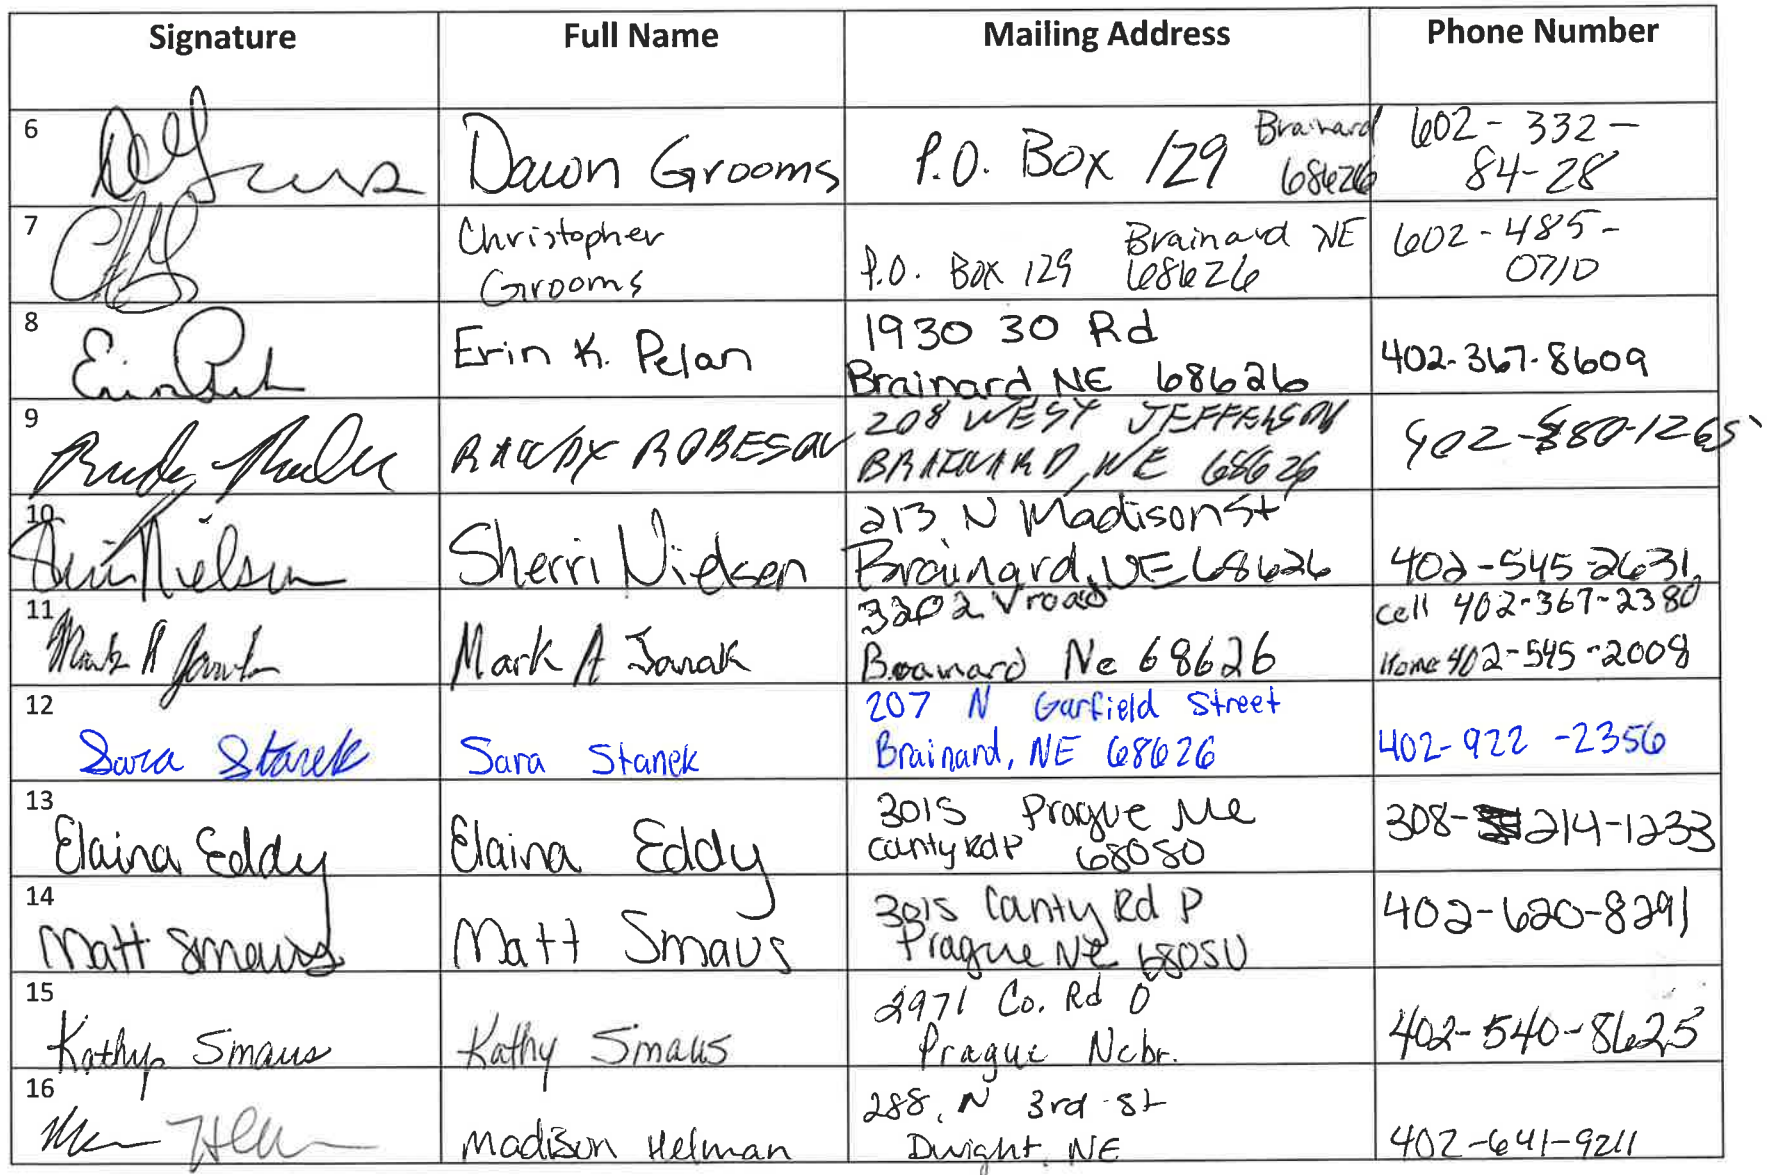 Signature Full Name Mailing Address Phone Number
6 Dawn Grooms P.O. Box 129 Brainard 68626 602-332-
84-28
7 Christopher
Grooms
P.O. Box 129 Brainard NE
68626
602-485-
0710
8 Erin K. Pelan
1930 30 Rd
Brainard NE 68626
402-367-8609
9 RANDY ROBESON
208 WEST JEFFERSON
BRAINARD, NE 68626
402-880-1265
10 Sherri Nielsen
213 N Madison St
Brainard, NE 68626
402-545-2631
11 Mark A Janak
3202 V road
Brainard Ne 68626
cell 402-367-2380
Home 402-545-2008
12 Sara Stanek Sara Stanek
207 N Garfield Street
Brainard, NE 68626
402-922-2356
13 Elaina Eddy Elaina Eddy
3015 Prague Ne
Canty Rd P 68050
308-214-1233
14 Matt Smaus Matt Smaus
3015 Canty Rd P
Prague NE 68050
402-620-8291
15 Kathy Smaus Kathy Smaus
2971 Co. Rd O
Prague Nebr.
402-540-8625
16 Madison Helman
288, N 3rd St
Dwight, NE
402-641-9211